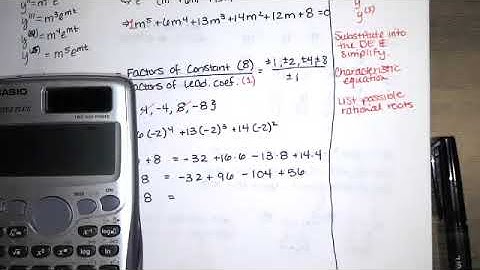 y''' = m³e^mt
y^(4) = m⁴e^mt
y^(5) = m⁵e^mt
⇒ 1m⁵ + 6m⁴ + 13m³ + 14m² + 12m + 8 = 0
Factors of Constant (8) = ±1, ±2, ±4, ±8
Factors of Lead. Coef. (1) ±1
4, -4, 8, -8}
6(-2)⁴ + 13(-2)³ + 14(-2)²
+ 8 = -32 + 16·6 - 13·8 + 14·4
8 = -32 + 96 - 104 + 56
8 =
Substitute into
the DE &
simplify.
Characteristic
equation
List possible
rational roots
CASIO